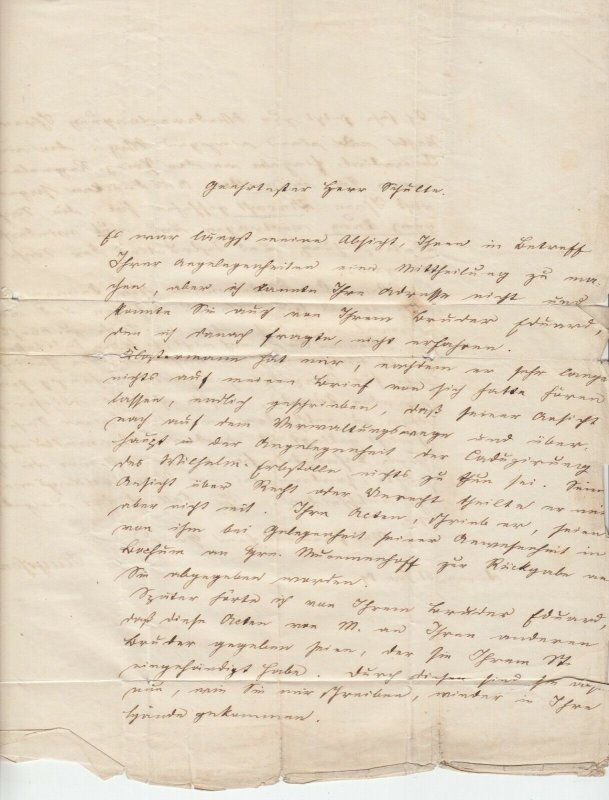 Geehrtester Herr Schulte.
Es war längst meine Absicht, Ihnen in Betreff
Ihrer Angelegenheiten eine Mittheilung zu ma-
chen, aber ich kannte Ihre Adresse nicht und
konnte Sie auch von Ihrem Bruder Eduard,
den ich danach fragte, nicht erfahren.
Klostermann hat mir, nachdem er sehr lange
nichts auf meinen Brief von sich hatte hören
lassen, endlich geschrieben, daß seiner Ansicht
nach auf dem Verwaltungswege und über-
haupt in der Angelegenheit der Caduzirung
des Wilhelm-Erbstolle nichts zu thun sei. Seine
Ansicht über Recht oder Unrecht theilte er mir
aber nicht mit. Ihre Acten, schrieb er, seien
von ihm bei Gelegenheit seiner Anwesenheit in
Bochum an Hrn. zur Rückgabe an
Sie abgegeben worden.
Später hörte ich von Ihrem Bruder Eduard,
daß diese Acten von M. an Ihren anderen
Bruder gegeben seien, der sie Ihrem
eingehändigt habe. Durch diesen sind sie
nun, wie Sie mir schreiben, wieder in Ihre
Hände gekommen.